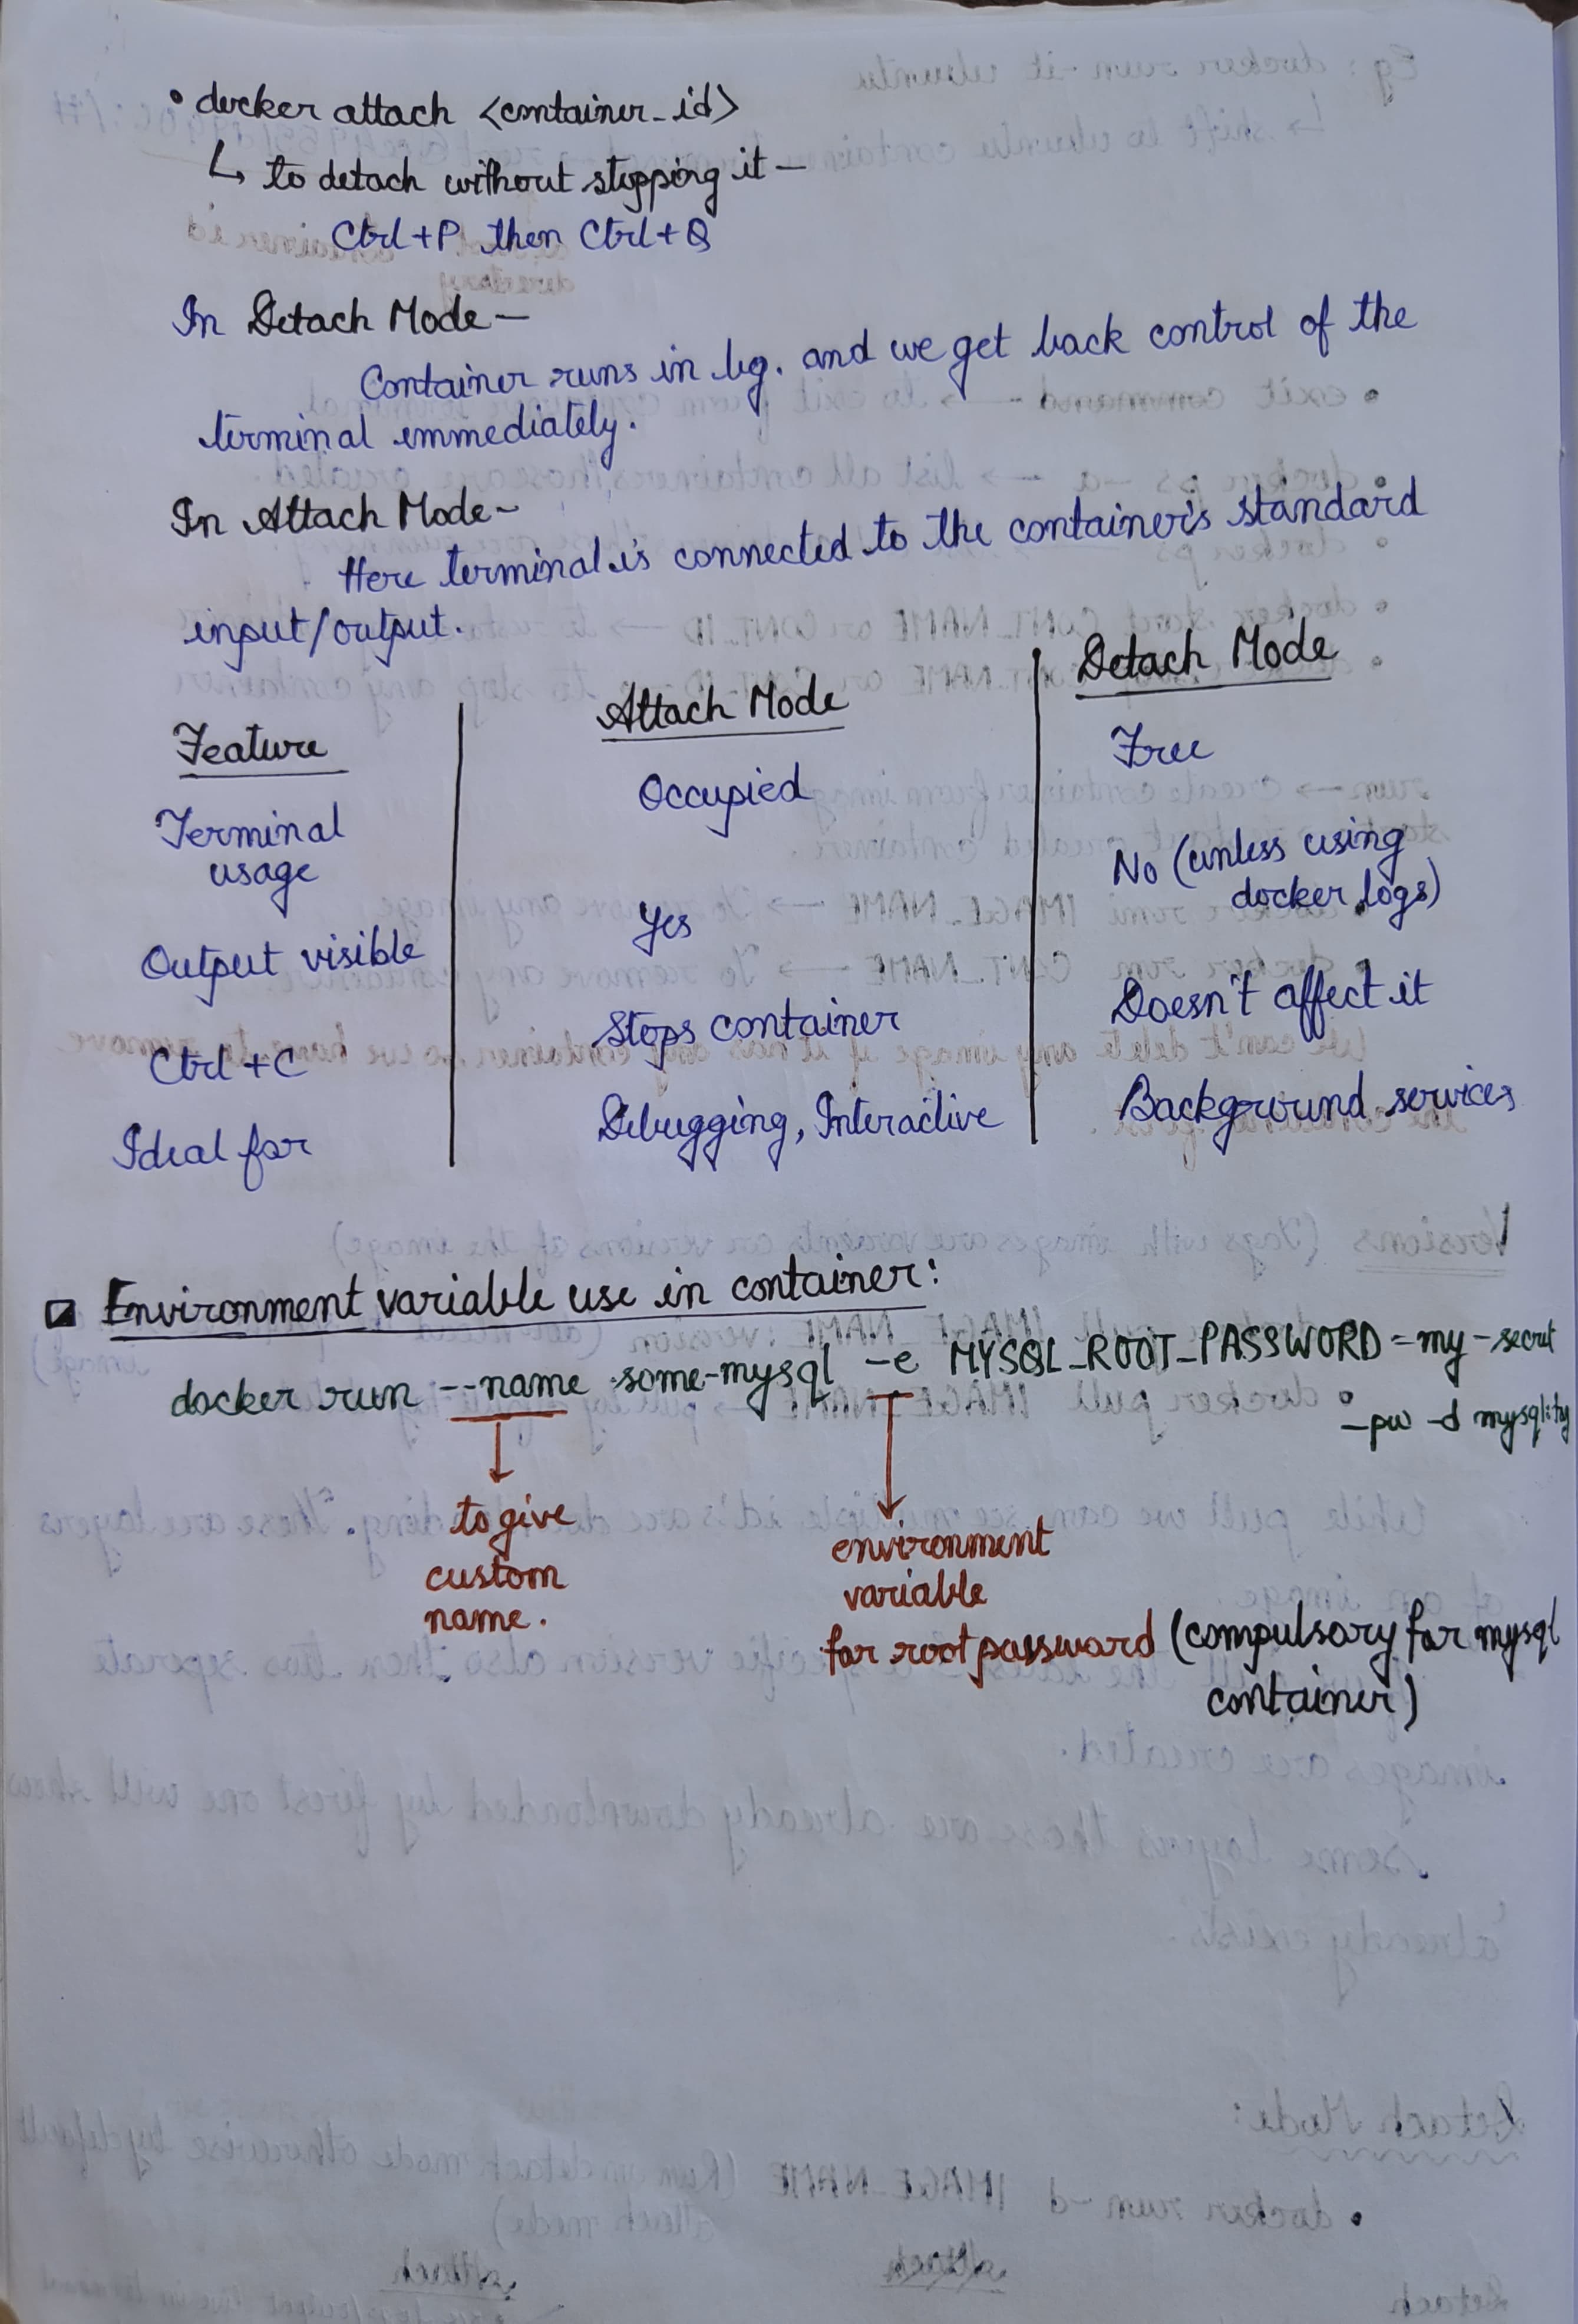 • docker attach <container_id>
↳ to detach without stopping it —
Ctrl+P then Ctrl+Q
In Detach Mode —
Container runs in bg. and we get back control of the
terminal immediately.
In Attach Mode -
Here terminal is connected to the container's standard
input/output.
Feature | Attach Mode | Detach Mode
Terminal usage | Occupied | Free
Output visible | Yes | No (unless using docker logs)
Ctrl + C | Stops container | Doesn't affect it
Ideal for | Debugging, Interactive | Background services
Environment variable use in container:
docker run --name some-mysql -e MYSQL_ROOT_PASSWORD = my-secret
-pw -d mysql:tag
to give
custom
name.
environment
variable
for root password (compulsory for mysql
container)